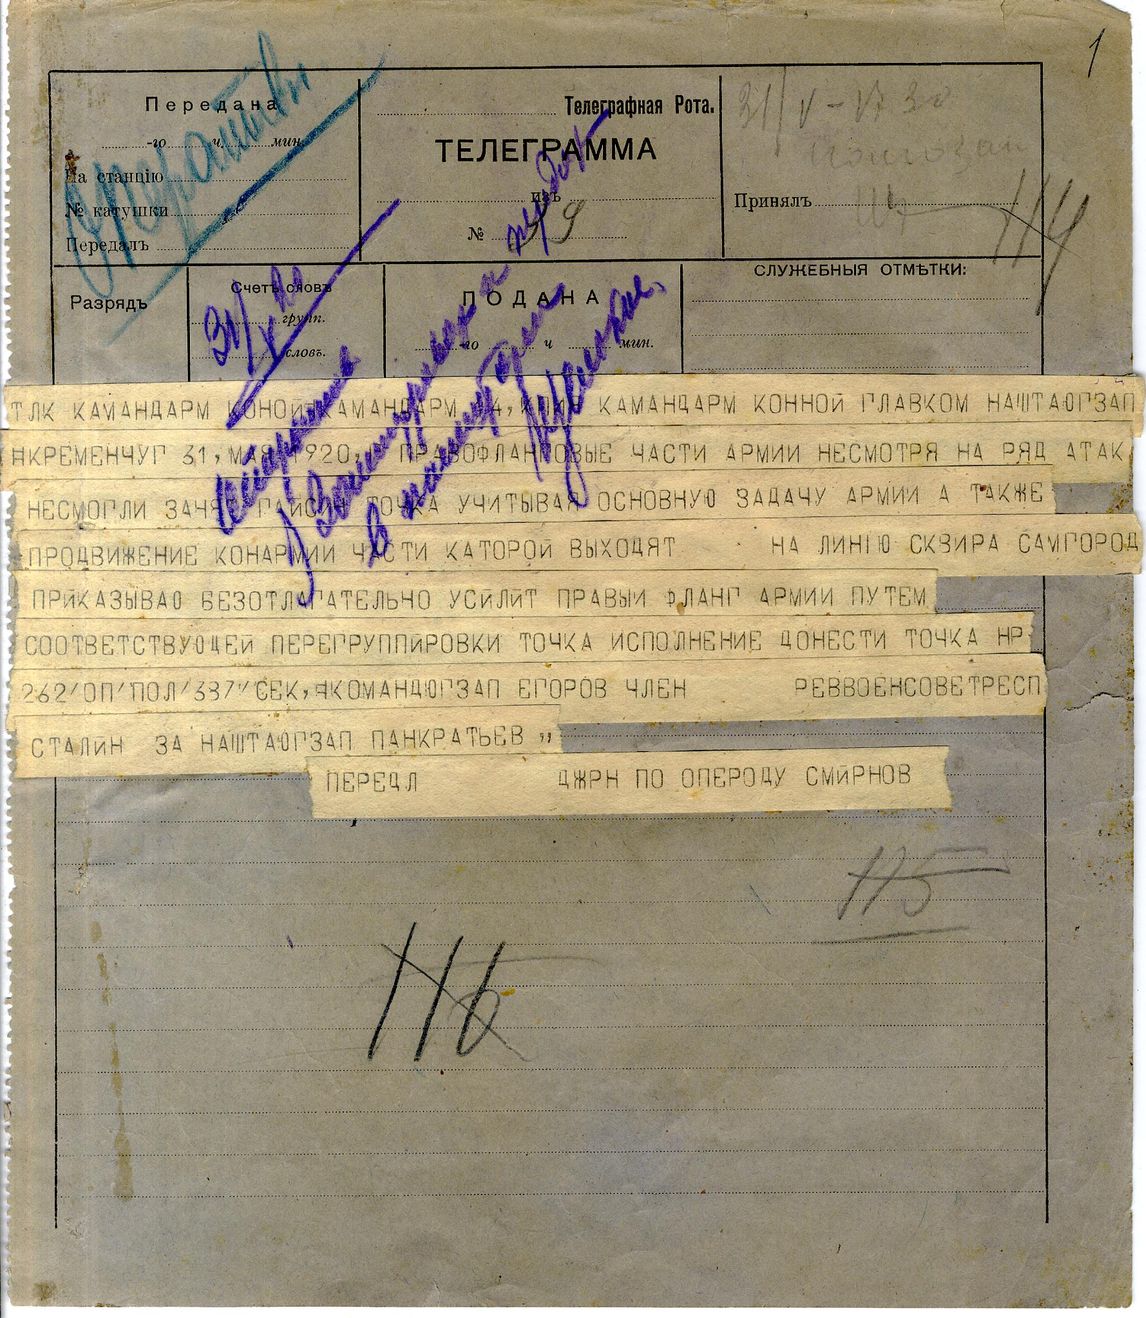 1
Передана
-го ч. мин.
На станцію
№ катушки
Передалъ
Оперативн
Телеграфная Рота.
ТЕЛЕГРАММА
изъ
№ 9
31/V – 17 30
Принялъ
114
Разрядъ
Счетъ словъ
групп.
словъ.
31/V
ПОДАНА
го ч мин.
СЛУЖЕБНЫЯ ОТМѢТКИ:
ТЛК КАМАНДАРМ КОНОЙ КАМАНДАРМ 14, КАМАНДАРМ КОННОЙ ГЛАВКОМ НАШТАЮГЗАП
КРЕМЕНЧУГ 31, МАЯ 1920, ПРАВОФЛАНГОВЫЕ ЧАСТИ АРМИИ НЕСМОТРЯ НА РЯД АТАК
НЕСМОГЛИ ЗАНЯТ ГАЙСИН ТОЧКА УЧИТЫВАЯ ОСНОВНУЮ ЗАДАЧУ АРМИИ А ТАКЖЕ
ПРОДВИЖЕНИЕ КОНАРМИИ ЧАСТИ КАТОРОЙ ВЫХОДЯТ НА ЛИНІЮ СКВИРА САМГОРОД
ПРИКАЗЫВАЮ БЕЗОТЛАГАТЕЛЬНО УСИЛИТ ПРАВЫЙ ФЛАНГ АРМИИ ПУТЕМ
СООТВЕТСТВУЮЩЕЙ ПЕРЕГРУППИРОВКИ ТОЧКА ИСПОЛНЕНИЕ ДОНЕСТИ ТОЧКА НР
262/ОП/ПОЛ/387/СЕК, КОМАНДЮГЗАП ЕГОРОВ ЧЛЕН РЕВВОЕНСОВЕТРЕСП
СТАЛИН ЗА НАШТАЮГЗАП ПАНКРАТЬЕВ „
ПЕРЕДЛ ДЖРН ПО ОПЕРОДУ СМИРНОВ
115
116